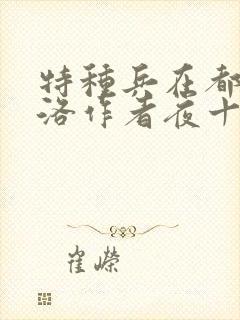 特種兵在都
洛作者夜十
崔嶸